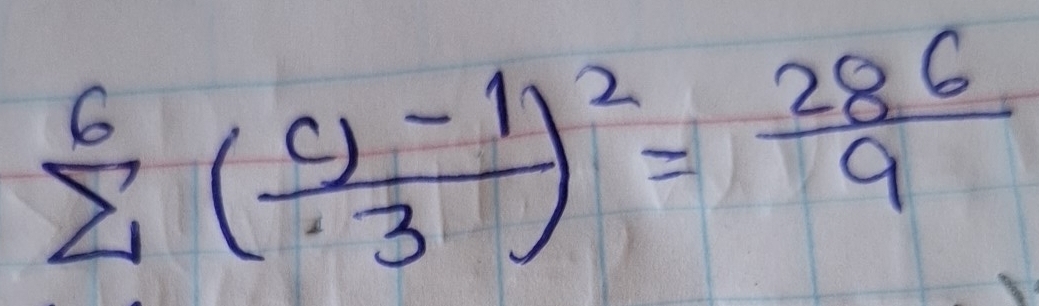 6
Σ (c) - 1 / 3)² = 286 / 9